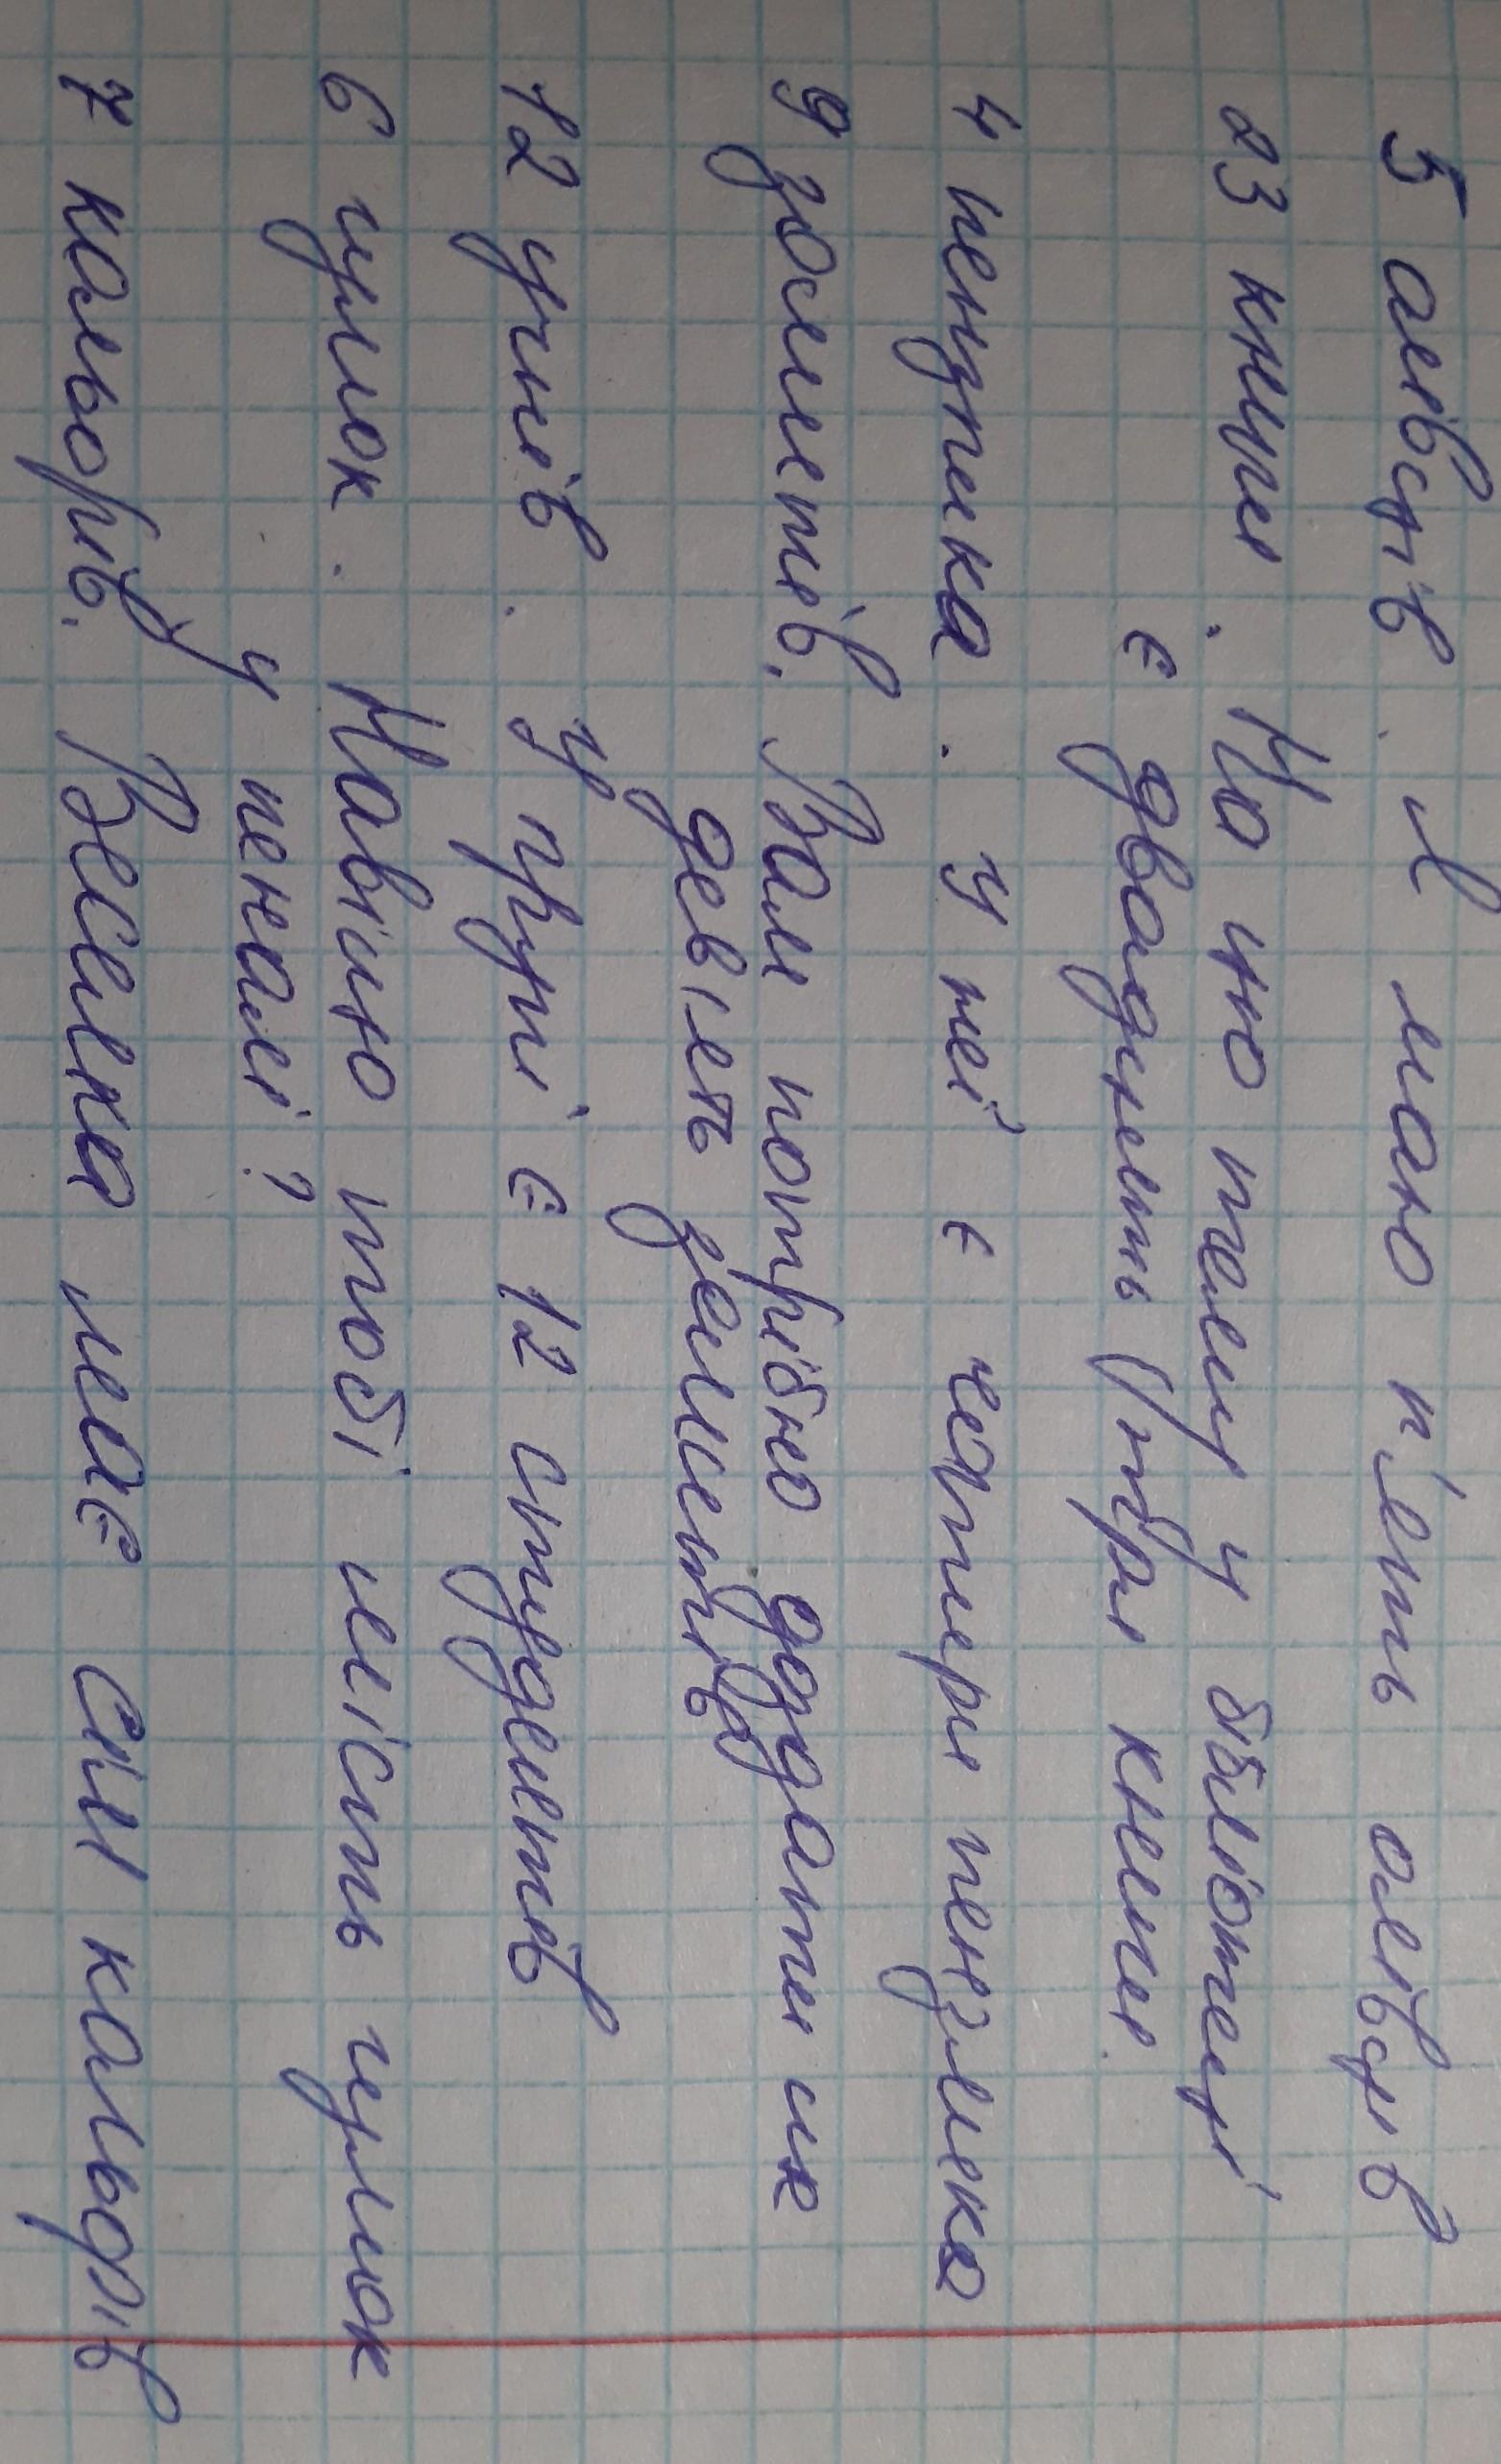 5 олівців. Я маю п'ять олівців
23 книги. На цю тему у бібліотеці
є двадцять (три книги.
4 пензлика. У неї є чотири пензлика
9 документів. Вам потрібно додати ще
девять документів
12 учнів. У групі є 12 студентів
6 гумок. Навіщо тобі шість гумок
у пеналі?
7 кольорів. Веселка має сім кольорів